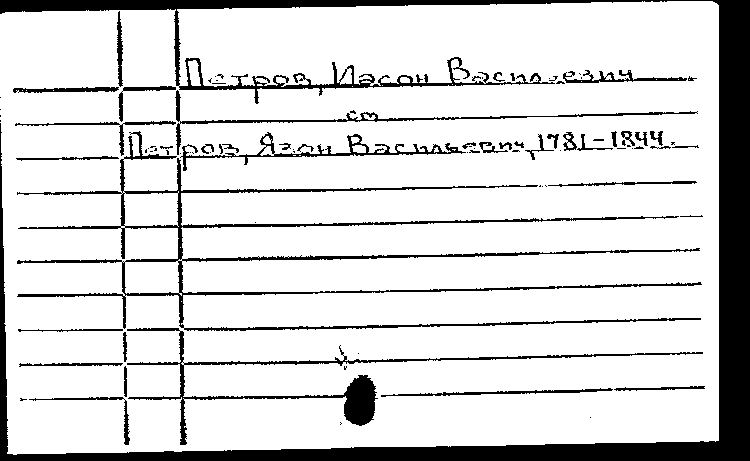 Петров, Иасон Васильевич
см
Петров, Язон Васильевич, 1781-1844.